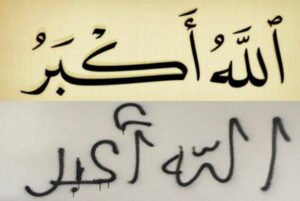 ٱللَّٰهُ أَكْبَرُ
اللّه أكبر